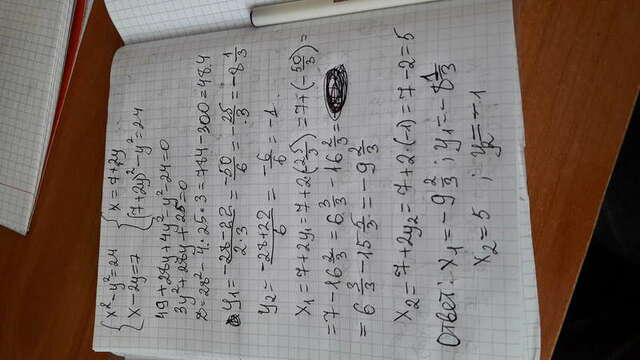 { x² - y² = 24   { x = 7 + 2y
{ x - 2y = 7   { (7+2y)² - y² = 24
49 + 28y + 4y² - y² - 24 = 0
3y² + 28y + 25 = 0
D = 28² - 4·25·3 = 784 - 300 = 484
y₁ = (-28-22)/(2·3) = -50/6 = -25/3 = -8 1/3
y₂ = (-28+22)/6 = -6/6 = -1
x₁ = 7 + 2y₁ = 7 + 2·(-25/3) = 7 + (-50/3) =
= 7 - 16 2/3 = 6 3/3 - 16 2/3 =
= 6 3/3 - 15 5/3 = -9 2/3
x₂ = 7 + 2y₂ = 7 + 2·(-1) = 7 - 2 = 5
Ответ: x₁ = -9 2/3 ; y₁ = -8 1/3
x₂ = 5 ; y₂ = -1